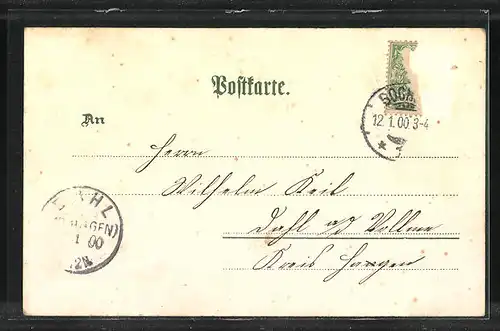 Postkarte.
BOCH
12.1.00 3-4
An
Herrn
Wilhelm Keil
Dahl a/d Vollme
Kreis Hagen
DAHL
(HAGEN)
1 00
12N